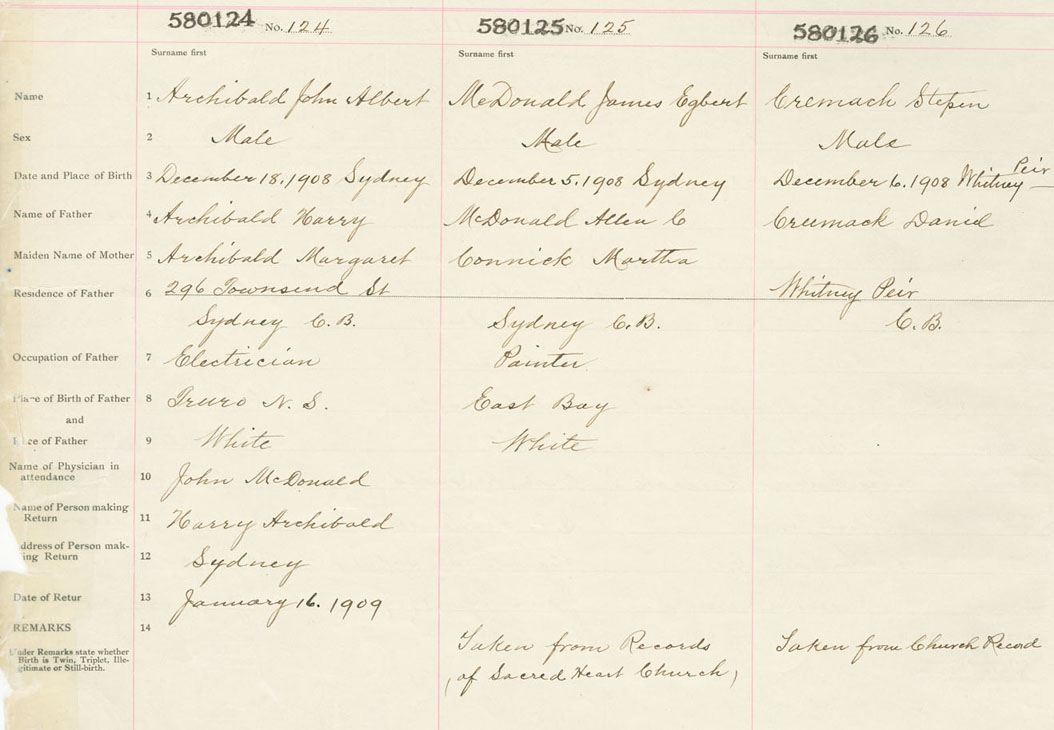 580124 No. 124 580125 No. 125 580126 No. 126
Surname first Surname first Surname first
Name 1 Archibald John Albert McDonald James Egbert Cremach Stepen
Sex 2 Male Male Male
Date and Place of Birth 3 December 18. 1908 Sydney December 5. 1908 Sydney December 6. 1908 Whitney Peir
Name of Father 4 Archibald Harry McDonald Allen C Creemack Daniel
Maiden Name of Mother 5 Archibald Margaret Connick Martha
Residence of Father 6 296 Townsend St Whitney Peir
Sydney C.B. Sydney C.B. C.B.
Occupation of Father 7 Electrician Painter
Place of Birth of Father 8 Truro N.S. East Bay
and
ce of Father 9 White White
Name of Physician in
attendance 10 John McDonald
Name of Person making
Return 11 Harry Archibald
ddress of Person mak-
ing Return 12 Sydney
Date of Retur 13 January 16. 1909
REMARKS 14
Under Remarks state whether
Birth is Twin, Triplet, Ille-
gitimate or Still-birth.
Taken from Records Taken from Church Record
(of Sacred Heart Church)